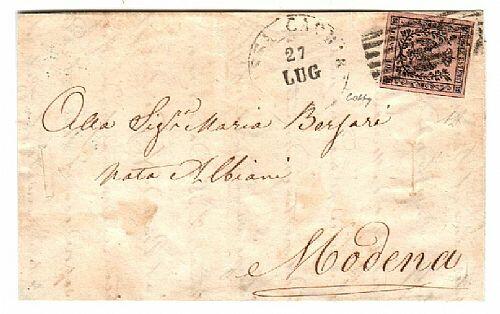 27
LUG
Alla Sig.ra Maria Bergari
nata Albiani
Modena